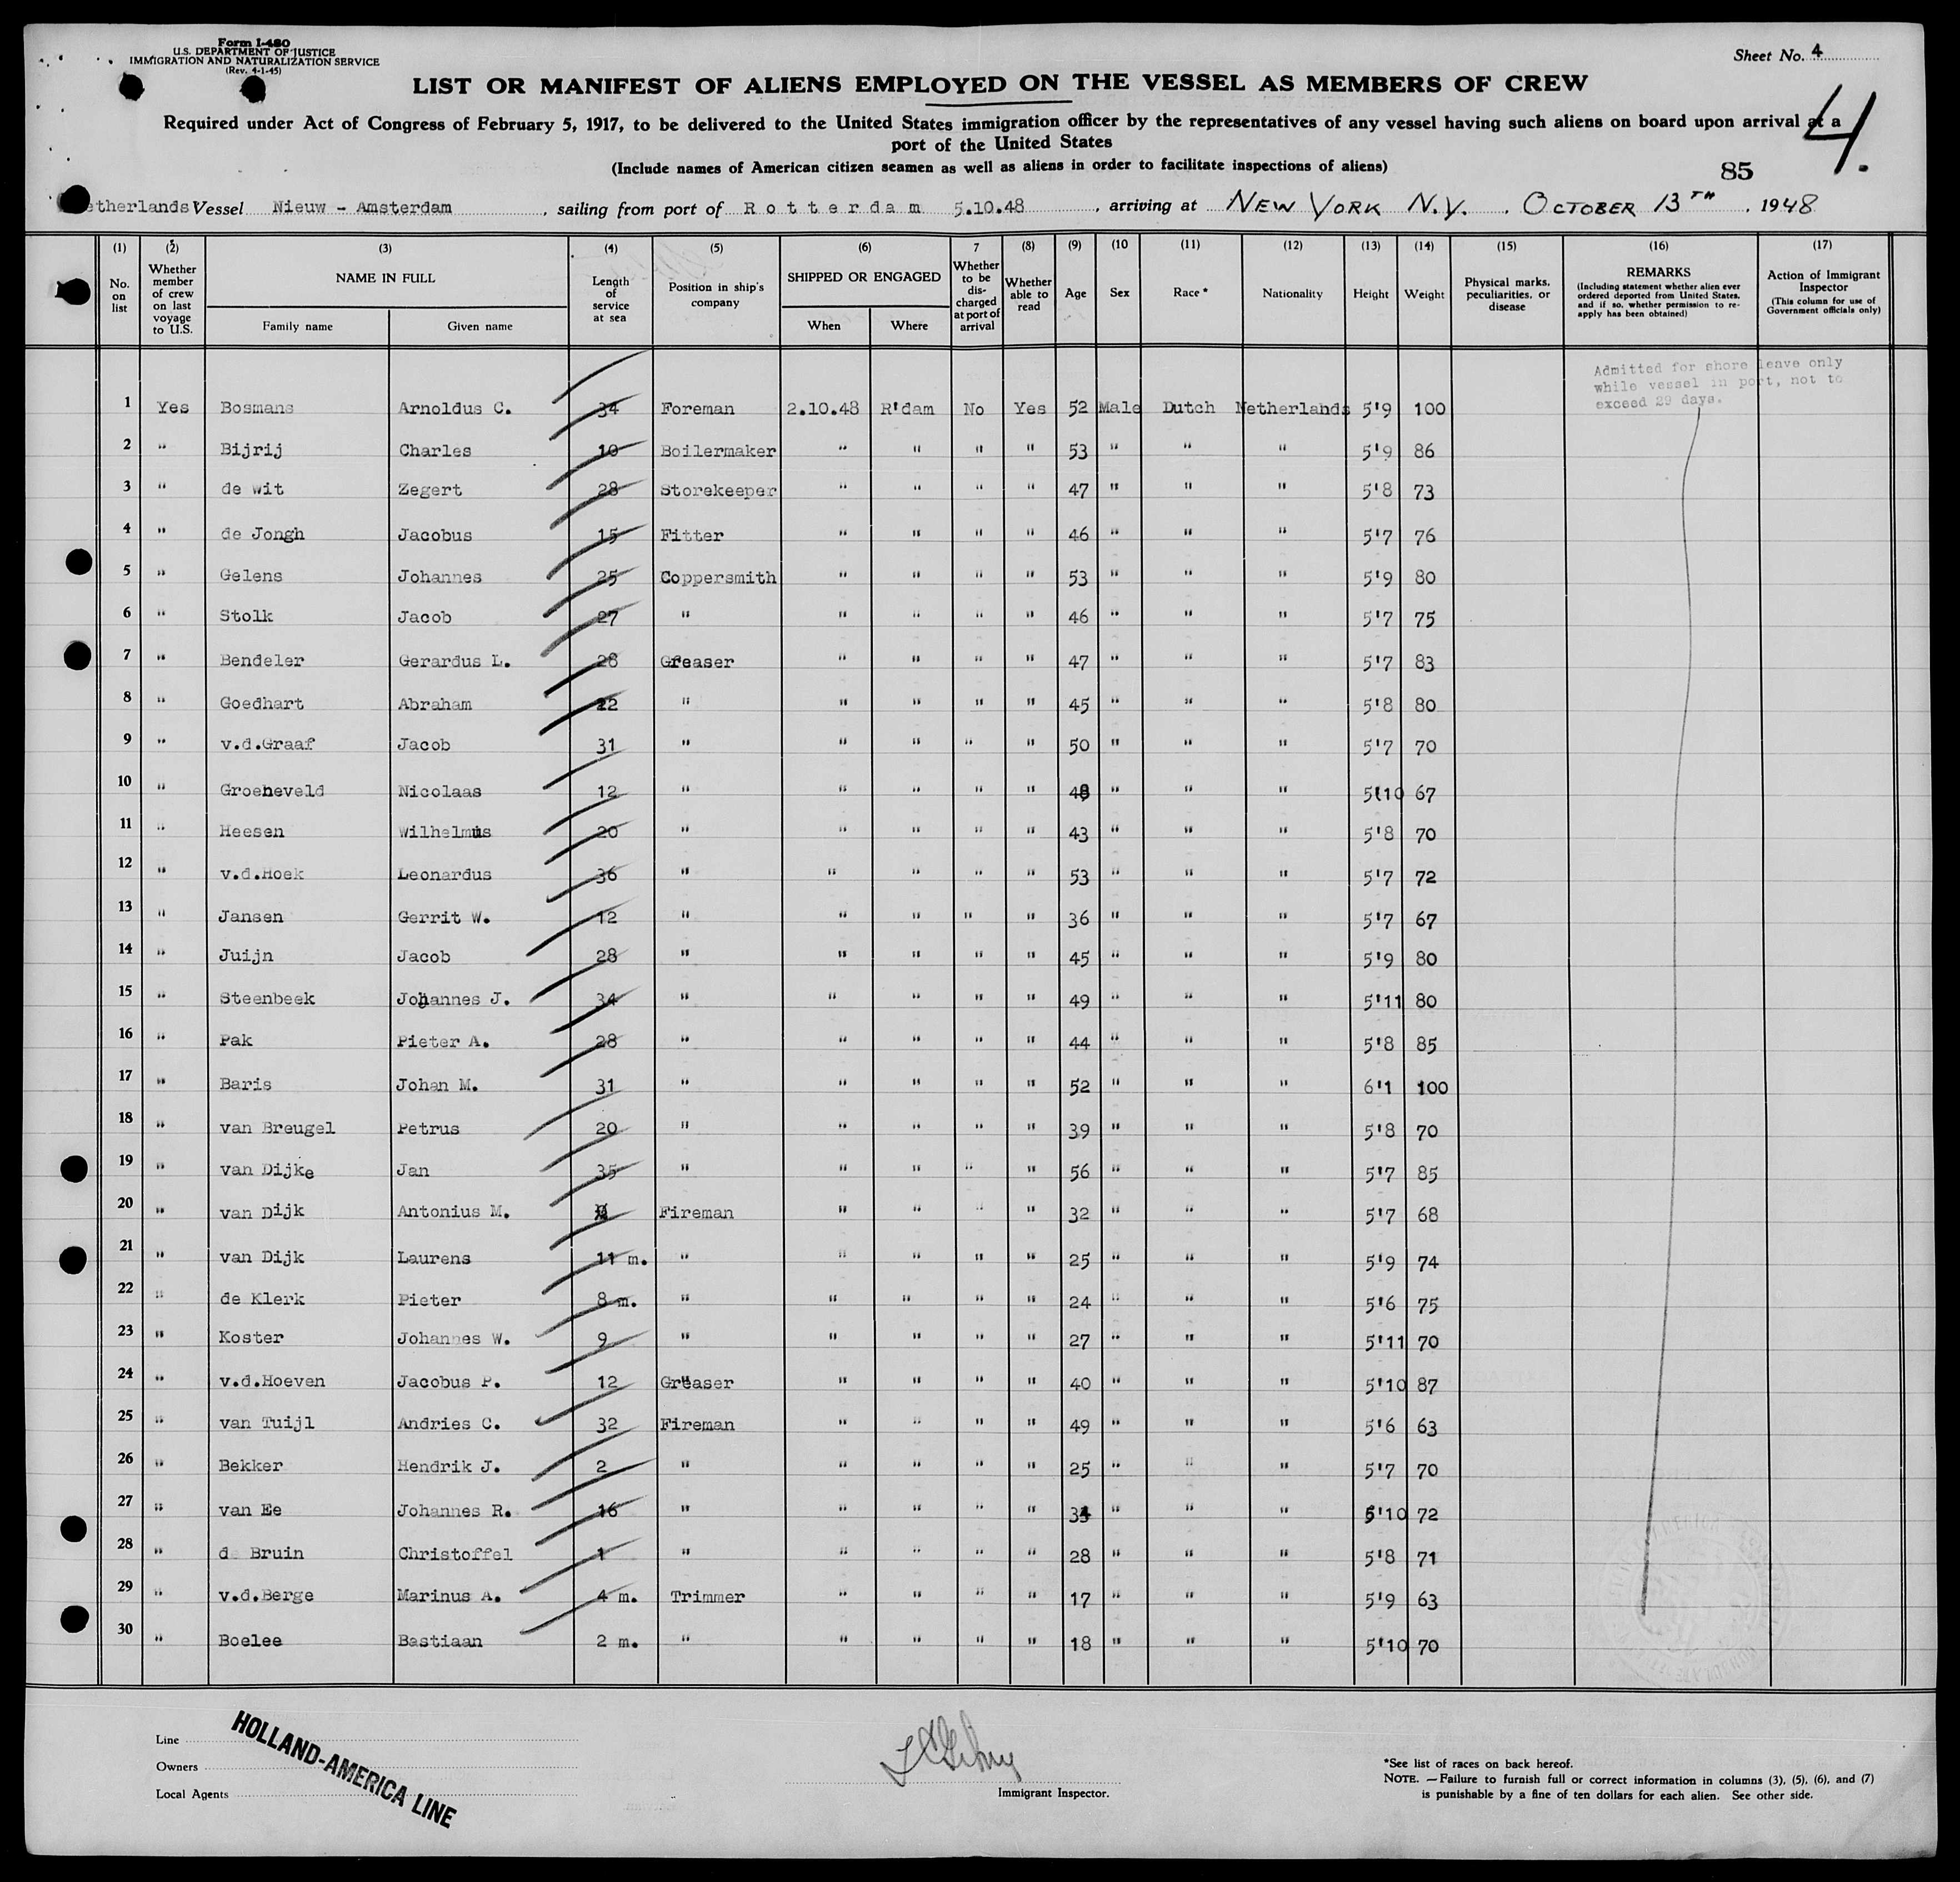 Form I-480
U.S. DEPARTMENT OF JUSTICE
IMMIGRATION AND NATURALIZATION SERVICE
(Rev. 4-1-45)
Sheet No. 4
LIST OR MANIFEST OF ALIENS EMPLOYED ON THE VESSEL AS MEMBERS OF CREW
4.
Required under Act of Congress of February 5, 1917, to be delivered to the United States immigration officer by the representatives of any vessel having such aliens on board upon arrival at a
port of the United States
(Include names of American citizen seamen as well as aliens in order to facilitate inspections of aliens)
85
etherlands Vessel Nieuw - Amsterdam, sailing from port of Rotterdam 5.10.48, arriving at NEW YORK N.Y., OCTOBER 13TH, 1948
(1) (2) (3) (4) (5) (6) 7 (8) (9) (10 (11) (12) (13) (14) (15) (16) (17)
No. on list
Whether member of crew on last voyage to U.S.
NAME IN FULL
Family name
Given name
Length of service at sea
Position in ship's company
SHIPPED OR ENGAGED
When
Where
Whether to be discharged at port of arrival
Whether able to read
Age
Sex
Race *
Nationality
Height
Weight
Physical marks, peculiarities, or disease
REMARKS
(Including statement whether alien ever ordered deported from United States, and if so, whether permission to re-apply has been obtained)
Action of Immigrant Inspector
(This column for use of Government officials only)
Admitted for shore leave only
while vessel in port, not to
exceed 29 days.
1 Yes Bosmans Arnoldus C. 34 Foreman 2.10.48 R'dam No Yes 52 Male Dutch Netherlands 5'9 100
2 " Bijrij Charles 10 Boilermaker " " " " 53 " " " 5'9 86
3 " de Wit Zegert 28 Storekeeper " " " " 47 " " " 5'8 73
4 " de Jongh Jacobus 15 Fitter " " " " 46 " " " 5'7 76
5 " Gelens Johannes 25 Coppersmith " " " " 53 " " " 5'9 80
6 " Stolk Jacob 27 " " " " " 46 " " " 5'7 75
7 " Bendeler Gerardus L. 28 Greaser " " " " 47 " " " 5'7 83
8 " Goedhart Abraham 22 " " " " " 45 " " " 5'8 80
9 " v.d.Graaf Jacob 31 " " " " " 50 " " " 5'7 70
10 " Groeneveld Nicolaas 12 " " " " " 48 " " " 5'10 67
11 " Heesen Wilhelmus 20 " " " " " 43 " " " 5'8 70
12 " v.d.Hoek Leonardus 36 " " " " " 53 " " " 5'7 72
13 " Jansen Gerrit W. 12 " " " " " 36 " " " 5'7 67
14 " Juijn Jacob 28 " " " " " 45 " " " 5'9 80
15 " Steenbeek Johannes J. 34 " " " " " 49 " " " 5'11 80
16 " Pak Pieter A. 28 " " " " " 44 " " " 5'8 85
17 " Baris Johan M. 31 " " " " " 52 " " " 6'1 100
18 " van Breugel Petrus 20 " " " " " 39 " " " 5'8 70
19 " van Dijke Jan 35 " " " " " 56 " " " 5'7 85
20 " van Dijk Antonius M. Fireman " " " " 32 " " " 5'7 68
21 " van Dijk Laurens 11 m. " " " " " 25 " " " 5'9 74
22 " de Klerk Pieter 8 m. " " " " " 24 " " " 5'6 75
23 " Koster Johannes W. 9 " " " " " 27 " " " 5'11 70
24 " v.d.Hoeven Jacobus P. 12 Greaser " " " " 40 " " " 5'10 87
25 " van Tuijl Andries C. 32 Fireman " " " " 49 " " " 5'6 63
26 " Bekker Hendrik J. 2 " " " " " 25 " " " 5'7 70
27 " van Ee Johannes R. 16 " " " " " 34 " " " 5'10 72
28 " de Bruin Christoffel 1 " " " " " 28 " " " 5'8 71
29 " v.d.Berge Marinus A. 4 m. Trimmer " " " " 17 " " " 5'9 63
30 " Boelee Bastiaan 2 m. " " " " " 18 " " " 5'10 70
Line
Owners
Local Agents
HOLLAND-AMERICA LINE
Immigrant Inspector.
*See list of races on back hereof.
NOTE. — Failure to furnish full or correct information in columns (3), (5), (6), and (7)
is punishable by a fine of ten dollars for each alien. See other side.